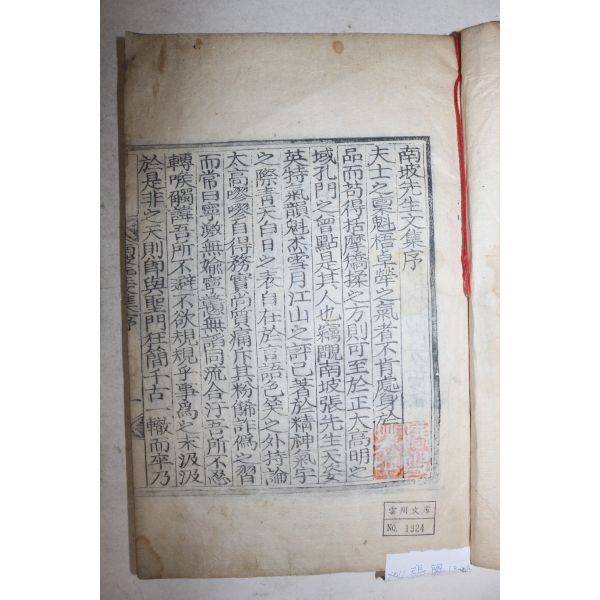 南坡先生文集序
夫士之稟魁梧卓犖之氣者不肯處身於
品而苟得括摩矯揉之方則可至於正大高明之
域孔門之曾點是其人也竊覸南坡張先生天姿
英特氣韻魁杰霽月江山之評已著於精神氣宇
之際靑天白日之表自在於言語色笑之外持論
太高嘐嘐自得務實尙質痛斥其粉餙詐僞之習
而常曰寧激無郁寧戇無諂同流合汙吾所不忍
轉喉觸諱吾所不避不欲規規乎事爲之末汲汲
於是非之天則即與聖門狂簡千古一轍而卒乃
南坡先生文集序
一
雲川文庫
No. 1324